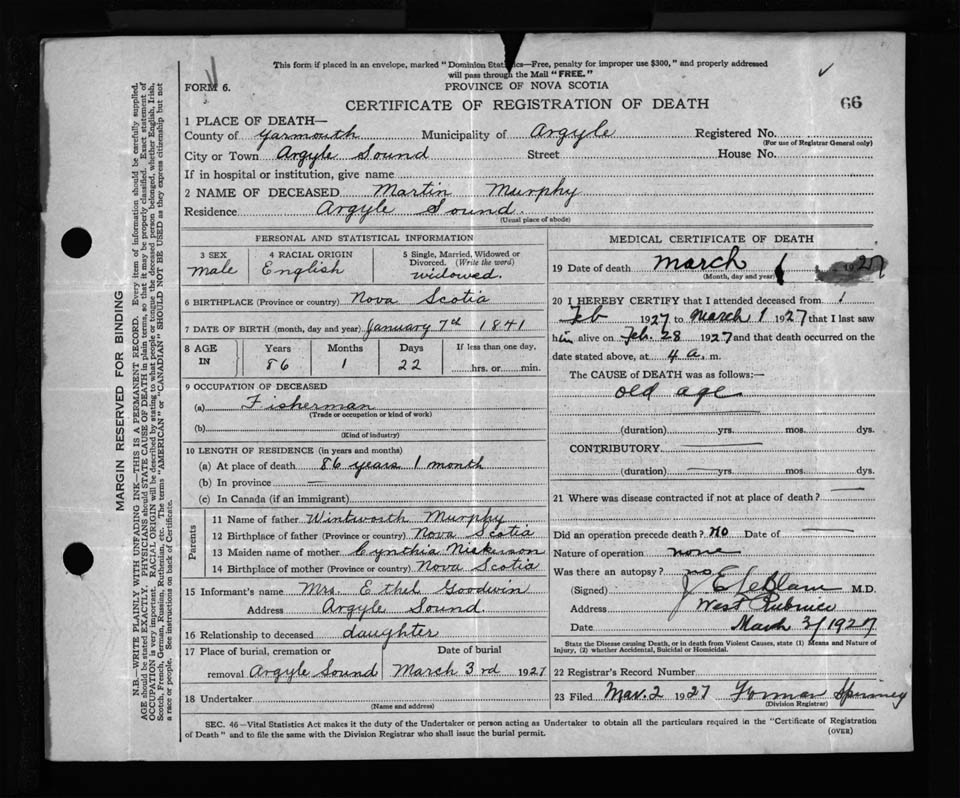 This form if placed in an envelope, marked "Dominion Statistics—Free, penalty for improper use $300," and properly addressed
will pass through the Mail "FREE."
FORM 6.
PROVINCE OF NOVA SCOTIA
CERTIFICATE OF REGISTRATION OF DEATH
66
1 PLACE OF DEATH—
County of Yarmouth Municipality of Argyle Registered No.
(For use of Registrar General only)
City or Town Argyle Sound Street House No.
If in hospital or institution, give name
2 NAME OF DECEASED Martin Murphy
Residence Argyle Sound.
(Usual place of abode)
PERSONAL AND STATISTICAL INFORMATION
3 SEX
male
4 RACIAL ORIGIN
English
5 Single, Married, Widowed or
Divorced. (Write the word)
widowed.
6 BIRTHPLACE (Province or country) Nova Scotia
7 DATE OF BIRTH (month, day and year) January 7th 1841
8 AGE IN Years Months Days If less than one day,
86 1 22 hrs. or min.
9 OCCUPATION OF DECEASED
(a) Fisherman
(Trade or occupation or kind of work)
(b)
(Kind of industry)
10 LENGTH OF RESIDENCE (in years and months)
(a) At place of death 86 years 1 month
(b) In province —
(c) In Canada (if an immigrant)
Parents
11 Name of father Wintworth Murphy
12 Birthplace of father (Province or country) Nova Scotia
13 Maiden name of mother Cynthia Nickerson
14 Birthplace of mother (Province or country) Nova Scotia
15 Informant's name Mrs. Ethel Goodwin
Address Argyle Sound.
16 Relationship to deceased daughter
17 Place of burial, cremation or Date of burial
removal Argyle Sound March 3rd 1927
18 Undertaker
(Name and address)
MEDICAL CERTIFICATE OF DEATH
19 Date of death March 1 1927
(Month, day and year)
20 I HEREBY CERTIFY that I attended deceased from
Feb 1927 to March 1 1927 that I last saw
him alive on Feb. 28 1927 and that death occurred on the
date stated above, at 4 a. m.
The CAUSE of DEATH was as follows:—
old age
(duration) yrs. mos. dys.
CONTRIBUTORY
(duration) yrs. mos. dys.
21 Where was disease contracted if not at place of death? —
Did an operation precede death? no Date of —
Nature of operation none
Was there an autopsy? no
(Signed) J E LeBlanc M.D.
Address West Pubnico
Date March 3/1927
State the Disease causing Death, or in death from Violent Causes, state (1) Means and Nature of
Injury, (2) whether Accidental, Suicidal or Homicidal.
22 Registrar's Record Number
23 Filed Mar. 2 1927 Forman Spinney
(Division Registrar)
SEC. 46—Vital Statistics Act makes it the duty of the Undertaker or person acting as Undertaker to obtain all the particulars required in the "Certificate of Registration
of Death" and to file the same with the Division Registrar who shall issue the burial permit.
(OVER)
MARGIN RESERVED FOR BINDING
N.B.—WRITE PLAINLY WITH UNFADING INK—THIS IS A PERMANENT RECORD. Every item of information should be carefully supplied.
AGE should be stated EXACTLY. PHYSICIANS should STATE CAUSE OF DEATH in plain terms, so that it may be properly classified. Exact statement of
OCCUPATION is very important. RACIAL ORIGIN will be described by stating to what people or tongue the deceased person belonged, whether English, Irish,
Scotch, French, German, Russian, Ruthenian, etc. The terms "AMERICAN" or "CANADIAN" SHOULD NOT BE USED as they express citizenship but not
a race or people. See instructions on back of Certificate.